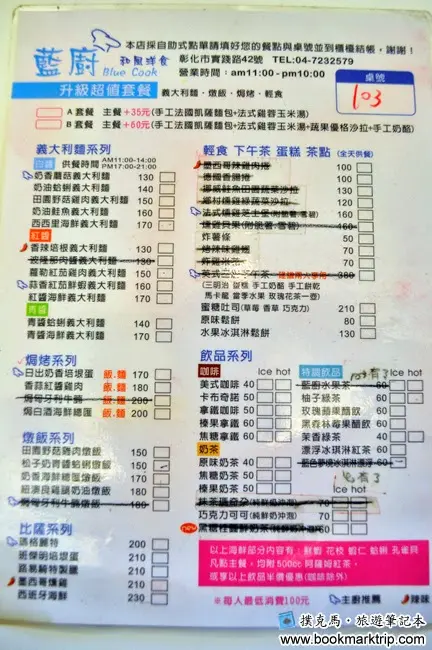 藍廚 和風洋食
Blue Cook
本店採自助式點單請填好您的餐點與桌號並到櫃檯結帳，謝謝！
彰化市實踐路42號 TEL:04-7232579
營業時間：am11:00-pm10:00
桌號
103
升級超值套餐
義大利麵、燉飯、焗烤、輕食
A 套餐 主餐+35元(手工法國凱薩麵包+法式雞蓉玉米湯)
B 套餐 主餐+60元(手工法國凱薩麵包+法式雞蓉玉米湯+蔬果優格沙拉+手工奶酪)
義大利麵系列
白醬 供餐時間 AM11:00-14:00
PM17:00-21:00
奶香蘑菇義大利麵 130
奶油蛤蜊義大利麵 160
田園野菇雞肉義大利麵 150
奶油鮭魚義大利麵 160
西西里海鮮義大利麵 170
紅醬
香辣培根義大利麵 130
波隆那肉醬義大利麵 130
蘿勒紅茄雞肉義大利麵 150
蒜香紅茄鮮蝦義大利麵 160
紅醬海鮮義大利麵 170
青醬
青醬蛤蜊義大利麵 140
青醬海鮮義大利麵 170
焗烤系列
日出奶香培根 飯.麵 170
香蒜紅醬雞肉 飯.麵 180
焗匈牙利牛腩 飯.麵 200
焗白酒海鮮總匯 飯.麵 200
燉飯系列
田園野菇雞肉燉飯 150
松子奶青醬蛤蜊燉飯 150
奶香海鮮總匯燉飯 170
匈牙利牛腩燉飯 180
比薩系列
瑪格麗特 210
班傑明培根蛋 210
路易絲特製臘 210
墨西哥燻雞 210
西班牙海鮮 230
輕食 下午茶 蛋糕 茶點 (全天供餐)
墨西哥辣雞肉捲 100
德國香腸捲 100
挪威鮭魚田園蔬菜沙拉 120
鄉村燻雞蔬菜沙拉 120
法式燻雞芝士堡(附脆薯.雪碧) 160
炸薯條 50
炸雞米花 50
英式三層下午茶 建議兩人享用 380
(三明治 蛋糕 手工奶酪 手工餅乾
馬卡龍 當季水果 玫瑰花茶一壺)
蜜糖吐司(草莓 香草 巧克力) 210
原味鬆餅 80
水果冰淇淋鬆餅 130
飲品系列
咖啡 Ice hot
美式咖啡 40
卡布奇諾 50
拿鐵咖啡 50
榛果拿鐵 60
焦糖拿鐵 60
奶茶
原味奶茶 40
焦糖奶茶 50
榛果奶茶 50
抹茶嬉奇朵(純鮮奶沖泡) 70
巧克力可可(純鮮奶沖泡) 70
特調飲品 Ice hot
藍廚水果茶 60
柚子綠茶 50
玫瑰蘋果醋飲 50
黑森林莓果醋飲 50
茉香綠茶 40
漂浮冰淇淋紅茶 60
藍色夢境冰淇淋漂浮 60
Ice hot
以上海鮮部分內容有：鮮蝦 花枝 蝦仁 蛤蜊 孔雀貝
凡點主餐，均附500cc 阿薩姆紅茶，
或享以上飲品半價優惠(咖啡除外)
※每人最低消費100元
主廚推薦
辣味
撲克馬．旅遊筆記本
http://www.bookmarktrip.com/